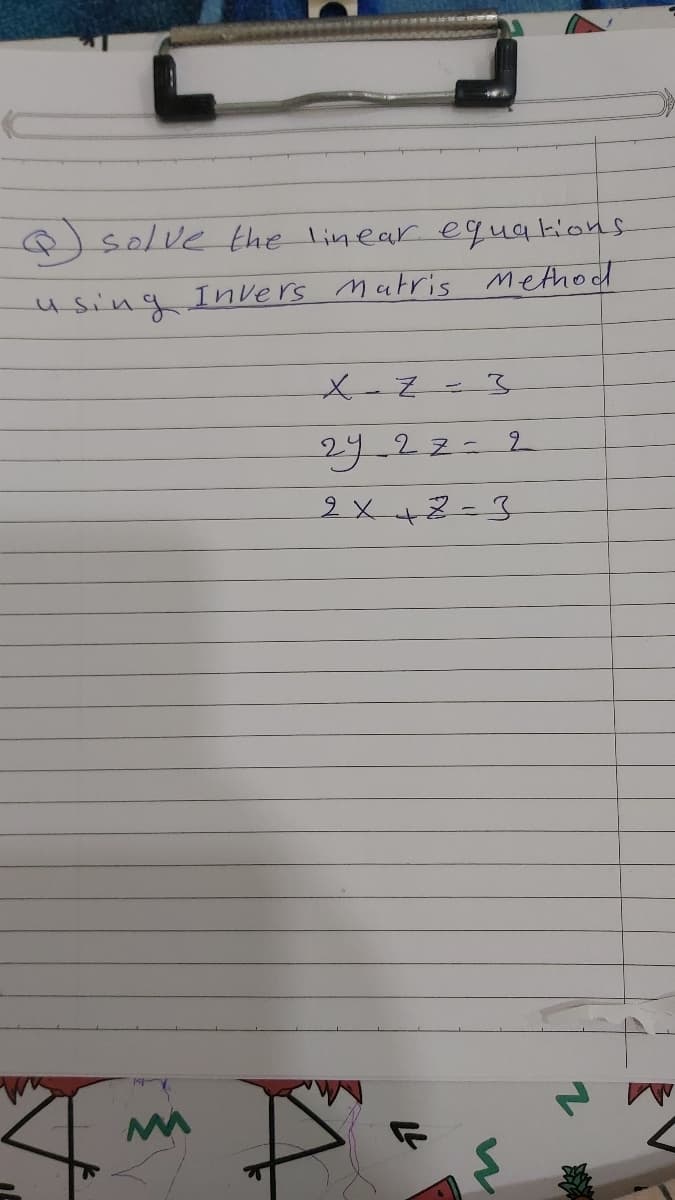 Q) solve the linear equations
using Invers Matris Method
x - z = 3
2y - 2z = 2
2x + z = 3